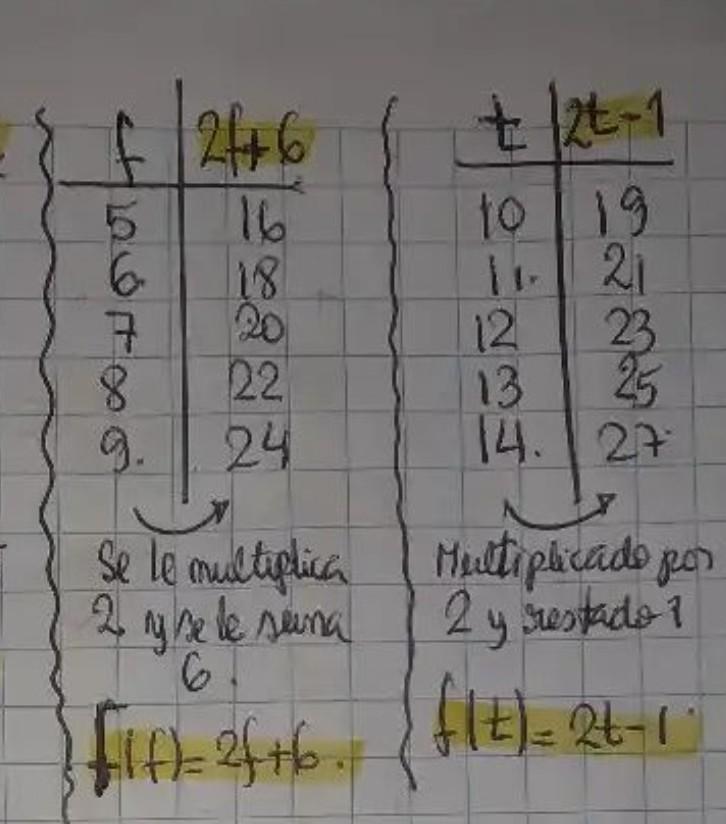 f 2f+6
5 16
6 18
7 20
8 22
9. 24
Se le multiplica
2 y se le suma
6.
f(f)=2f+6.
t 2t-1
10 19
11. 21
12 23
13 25
14. 27
Multiplicado por
2 y restado 1
f(t)=2t-1